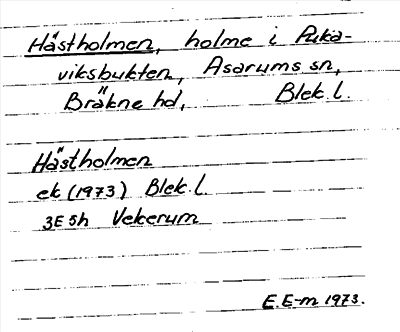 Hästholmen, holme i Puka-
viksbukten, Asarums sn,
Bräkne hd, Blek. l.
Hästholmen
ek (1973) Blek. l.
3E 5h Vekerum
E. E-m 1973.